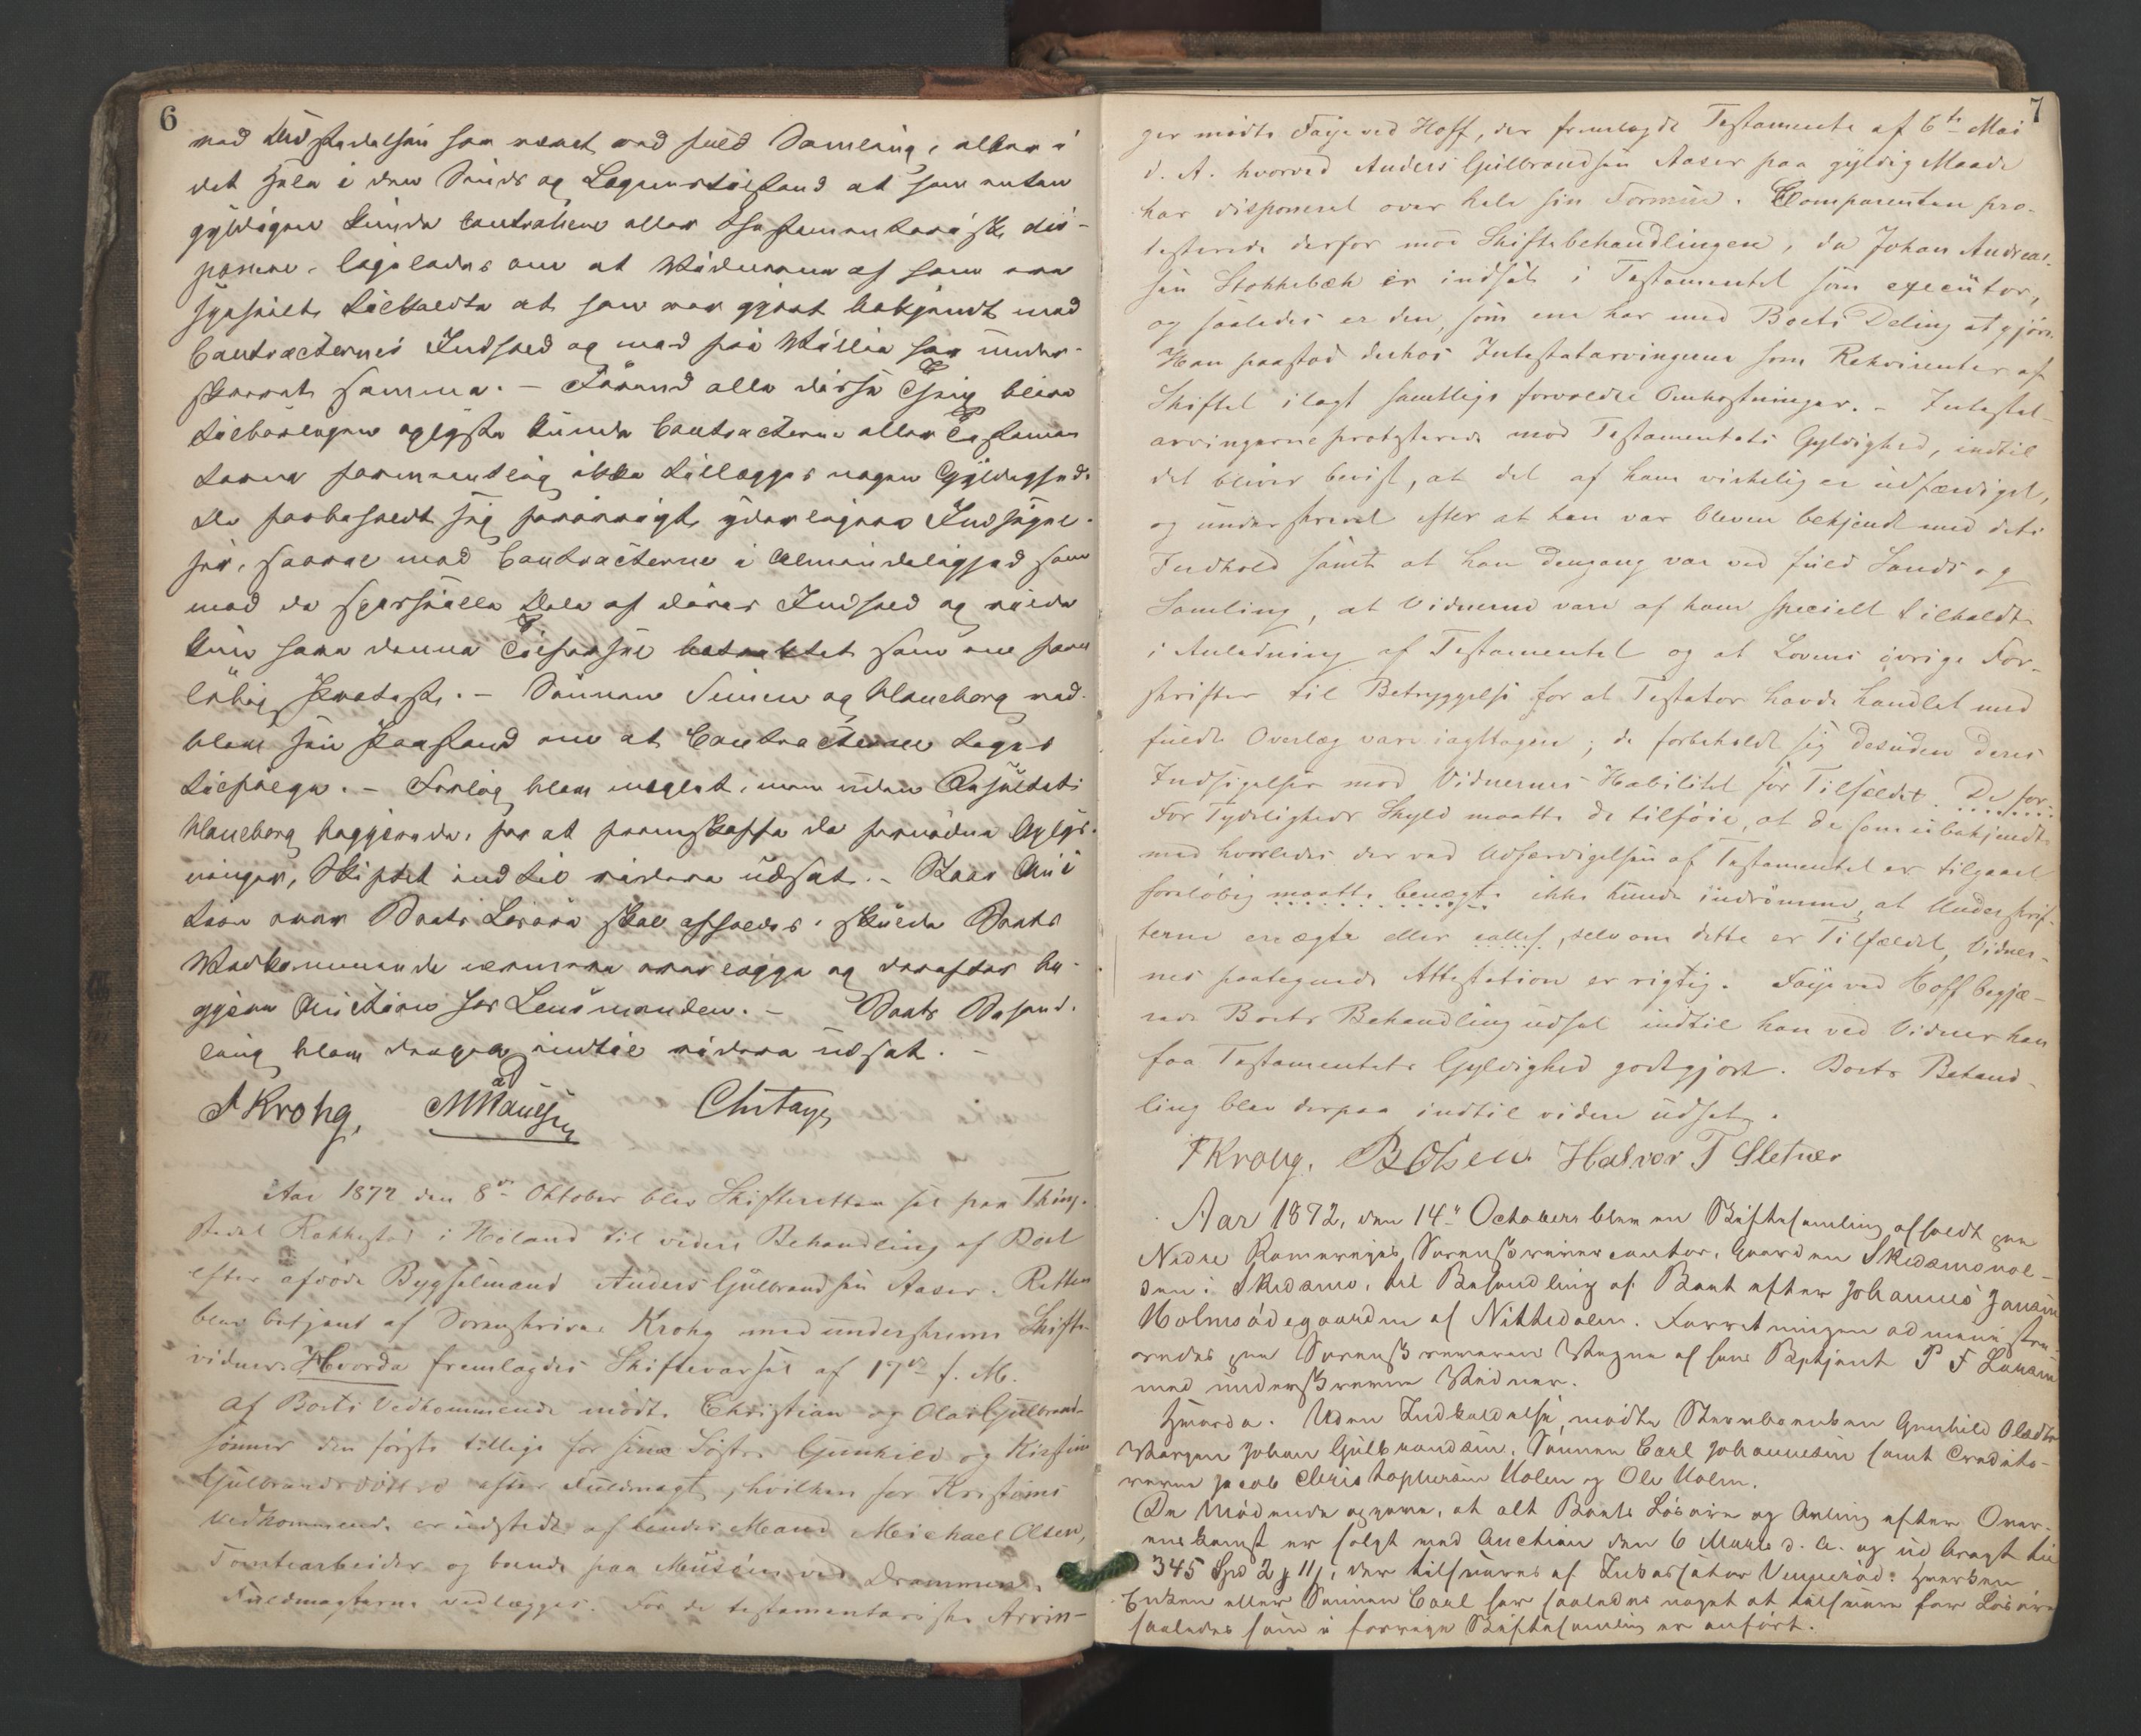 6
ved Udstedelsen har været ved fuld Samling, eller i
det Hele i den Sinds og Legemstilstand at han enten
gyldigen kunde contrahere eller testamentariske dis-
ponere, ligeledes om at Vidnerne af ham ere
specielt tilkaldte at han var gjort bekjendt med
Contracternes Indhold og med fri Villie har under-
skrevet samme. – Førend alle disse Ting blive
tilbørligen oplyste kunde Contracterne eller Testamen
terne formentlig ikke tillægges nogen Gyldighed.
De forbeholdt sig forøvrigt yderligere Indsigel-
ser, saavel mod Contracterne i Almindelighed som
mod de specielle Dele af deres Indhold og vilde
kun have denne Tilførsel betraktet som en fore
løbig Protest. – Sønnen Simen og Haneborg ned-
blev sin Paastand om at Contracterne toges
tilfølge. – Forlig blev mæglet, men uden Resultat.
Haneborg begjerede, for at fremskaffe de fornødne Oplys-
ninger, Skiftet indtil videre udsat. – Naar Auc
tion over Boets Løsøre skal afholdes, skulde Boets
Vedkommende nærmere overlægge og derefter be-
gjere Auction hos Lensmanden. – Boets Behand-
ling blev derpaa indtil videre udsat. –
A Krohg. MPaulsen
Aar 1872 den 8de Oktober blev Skifteretten sat paa Thing-
stedet Rakkestad i Høland til videre Behandling af Boet
efter afdøde Bygselmand Anders Gulbrandsen Aaser. Retten
blev betjent af Sorenskriver Krohg med underskrevne Skifte-
vidner. Hvorda fremlagdes Skiftevarsel af 17de f. M.
Af Boets Vedkommende mødte Christian og Olav Gulbrand-
sønner den første tillige for sine Søstre Gunhild og Kirstine
Gulbrandsdøttre efter Fuldmagt, hvilken for Kirstines
Vedkommende er udstedt af hendes Mand Michael Olsen,
Tomtearbeider og boende paa Muusøen ved Drammen.
Fuldmagterne vedlægges. For de testamentariske Arvin-
7
ger mødte Foged Hoff, der fremlagde Testamente af 6te Mai
d. A. hvorved Anders Gulbrandsen Aaser paa gyldig Maade
har disponeret over hele sin Formue. Comparenten pro-
testerede derfor mod Skiftebehandlingen, da Johan Andreas-
sen Stokkebæk er indsat i Testamentet som executor,
og saaledes er den, som ene har med Boets Deling at gjøre.
Han paastod derhos Intestatarvingerne som Rekvirenter af
Skiftet ilagt samtlige forvoldte Omkostninger. – Intestat-
arvingerne protesterede mod Testamentets Gyldighed, indtil
det bliver bevist, at det af ham virkelig er udfærdiget,
og underskrevet efter at han var bleven bekjendt med dets
Indhold samt at han dengang var ved fuld Sands og
Samling, at Vidnerne vare af ham specielt tilkaldte
i Anledning af Testamentet og at Lovens øvrige For-
skrifter til Betryggelse for at Testator havde handlet med
fuldt Overlæg vare iagttagne; de forbeholdt sig desuden deres
Indsigelser mod Vidnernes Habilitet for Tilfældet. De for-
For Tydeligheds Skyld maatte de tilføie, at de som ubekjendte
med hvorledes der ved Udfærdigelsen af Testamentet er tilgaaet
foreløbig maatte benægte ikke kunde indrømme, at Underskrif-
terne ere ægte eller eller, selv om dette er Tilfældet, Vidner-
nes paategnede Attestation er rigtig. Foged Hoff begjæ-
rede Boets Behandling udsat indtil han ved Vidner kan
faa Testamentets Gyldighed godtgjort. Boets Behand-
ling blev derpaa indtil videre udsat.
A Krohg. B Olsen. Halvor T Sletner
Aar 1872, den 14de October blev en Skiftesamling afholdt paa
Nedre Romeriges Sorenskrivercontor, Gaarden Skedsmovol-
den i Skedsmo, til Behandling af Boet efter Johannes Jansen
Holmsødegaarden af Nittedalen. Forretningen administre-
redes paa Sorenskriverens Vegne af hans Betjent P F Larsen
med underskrevne Vidner.
Hvorda. Uden Indkaldelse, mødte Stervboenken Gunhild Olsdtr
Værgen Johan Gulbrandsen, Sønnen Carl Johannesen samt Credito-
rerne Jacob Christophersen Holm og Ole Holm.
De Mødende opgave, at alt Boets Løsøre og Avling efter Over-
enskomst er solgt ved Auction den 6 Marts d. A. og udbragt til
345 Spd 2 ƒ 11 ß, der tilsvares af Incassator Vennerød. Hverken
Enken eller Sønnen Carl har saaledes noget at tilsvare for Løsøre
saaledes som i forrige Skiftesamling er anført.